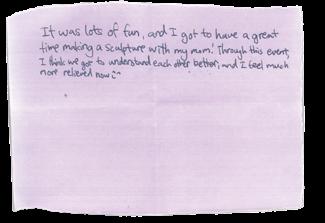 It was lots of fun, and I got to have a great
time making a sculpture with my mom! Through this event,
I think we got to understand each other better, and I feel much
more relieved now :^